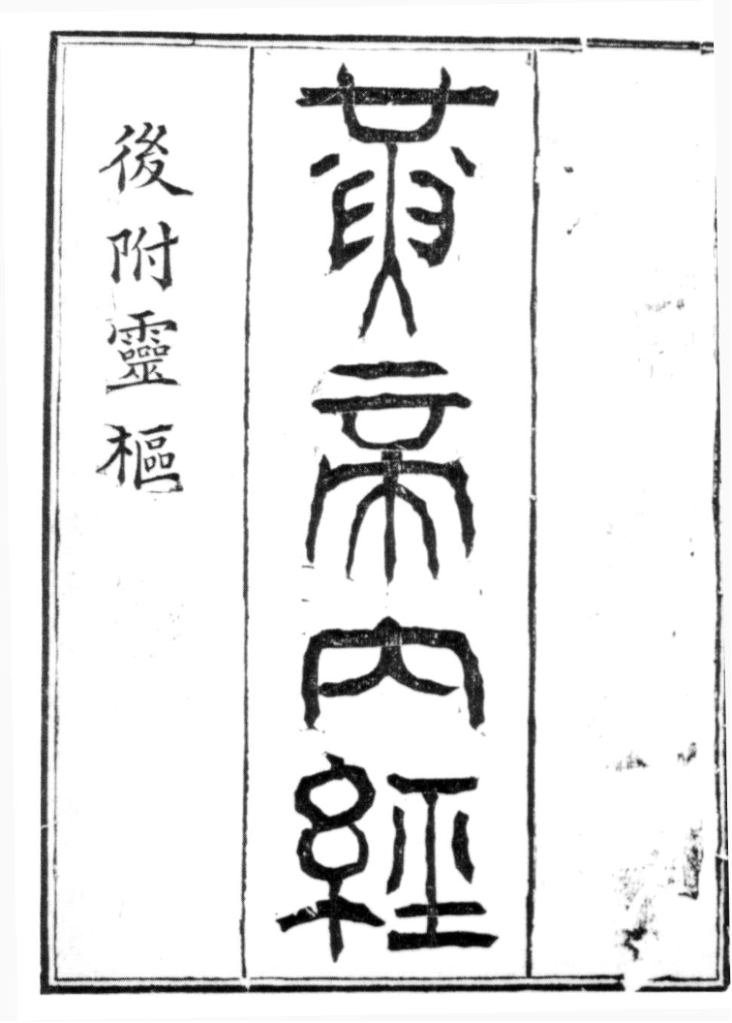 黃帝內經
後附靈樞